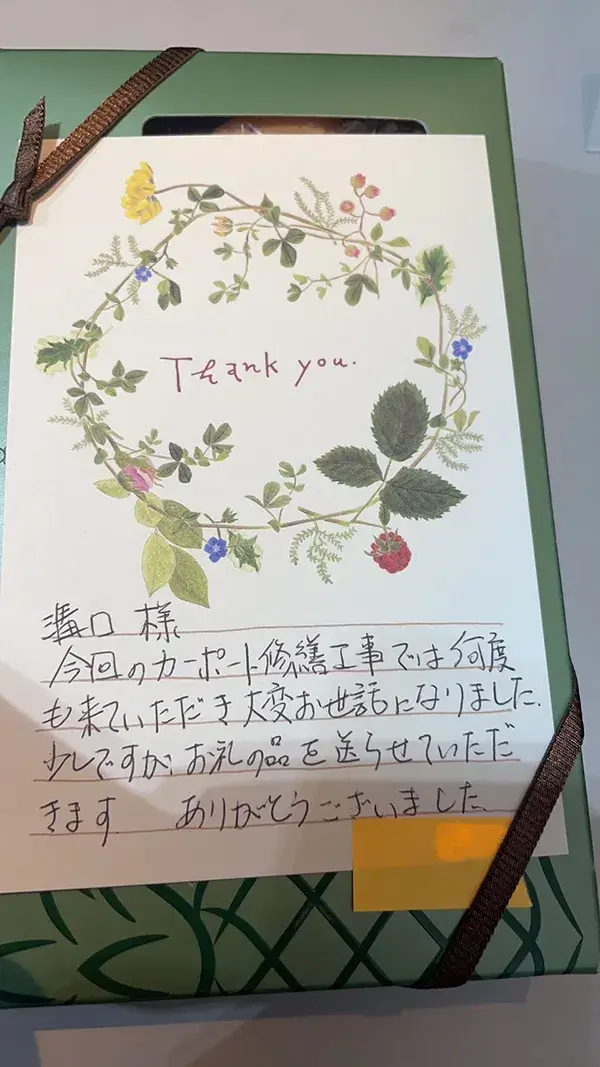 Thank you.
溝口 様
今回のカーポート修繕工事では何度
も来ていただき大変お世話になりました.
少しですが、お礼の品を送らせていただ
きます ありがとうございました